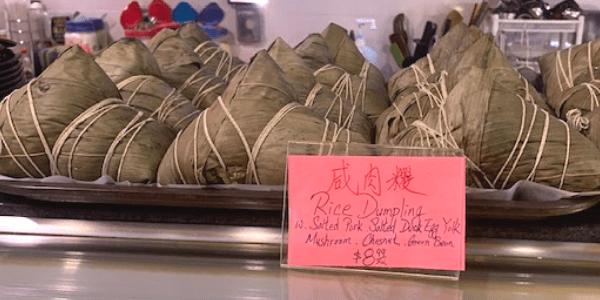 咸肉糉
Rice Dumpling
w. Salted Pork Salted Duck Egg Yolk
Mushroom . Chesnut . Green Bean
$8.99